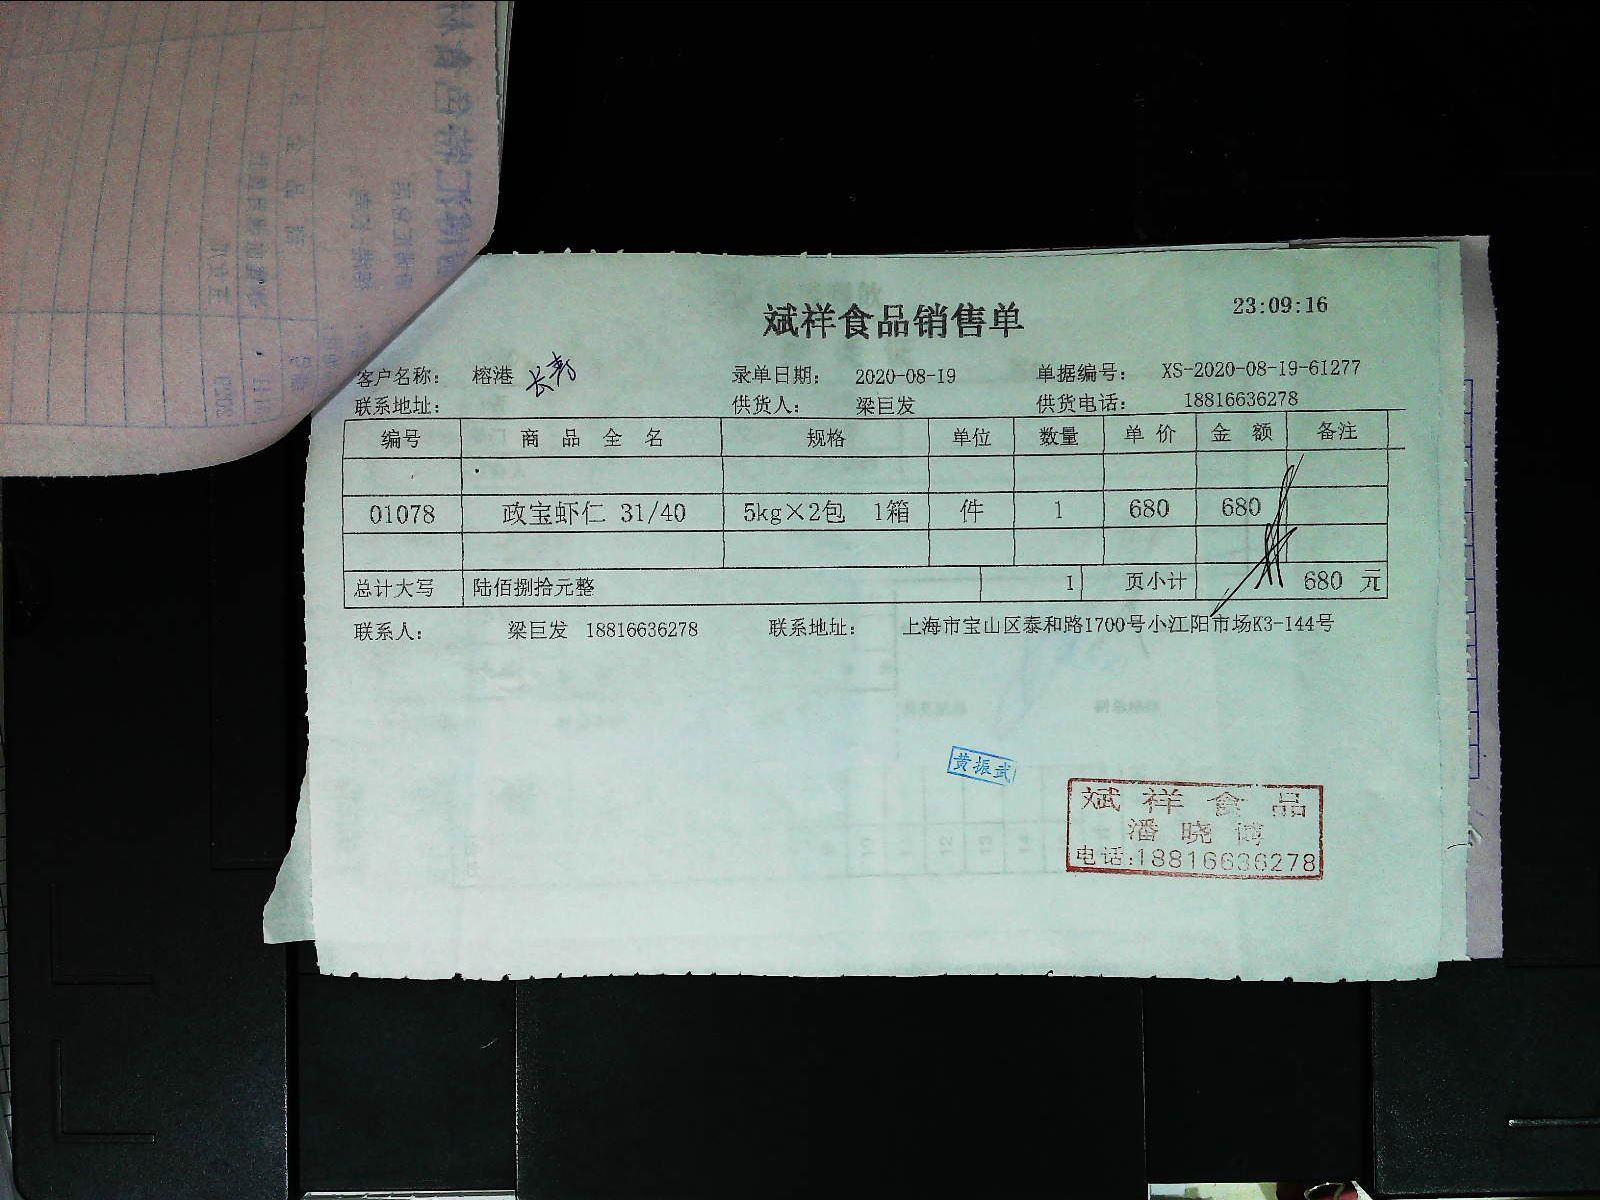 斌祥食品销售单
23:09:16
客户名称： 榕港 长寿 录单日期： 2020-08-19 单据编号： XS-2020-08-19-61277
联系地址： 供货人： 梁巨发 供货电话： 18816636278
编号 商品全名 规格 单位 数量 单价 金额 备注
01078 政宝虾仁 31/40 5kg×2包 1箱 件 1 680 680
总计大写 陆佰捌拾元整 1 页小计 680 元
联系人： 梁巨发 18816636278 联系地址： 上海市宝山区泰和路1700号小江阳市场K3-144号
黄振武
斌祥食品
潘晓博
电话:18816636278